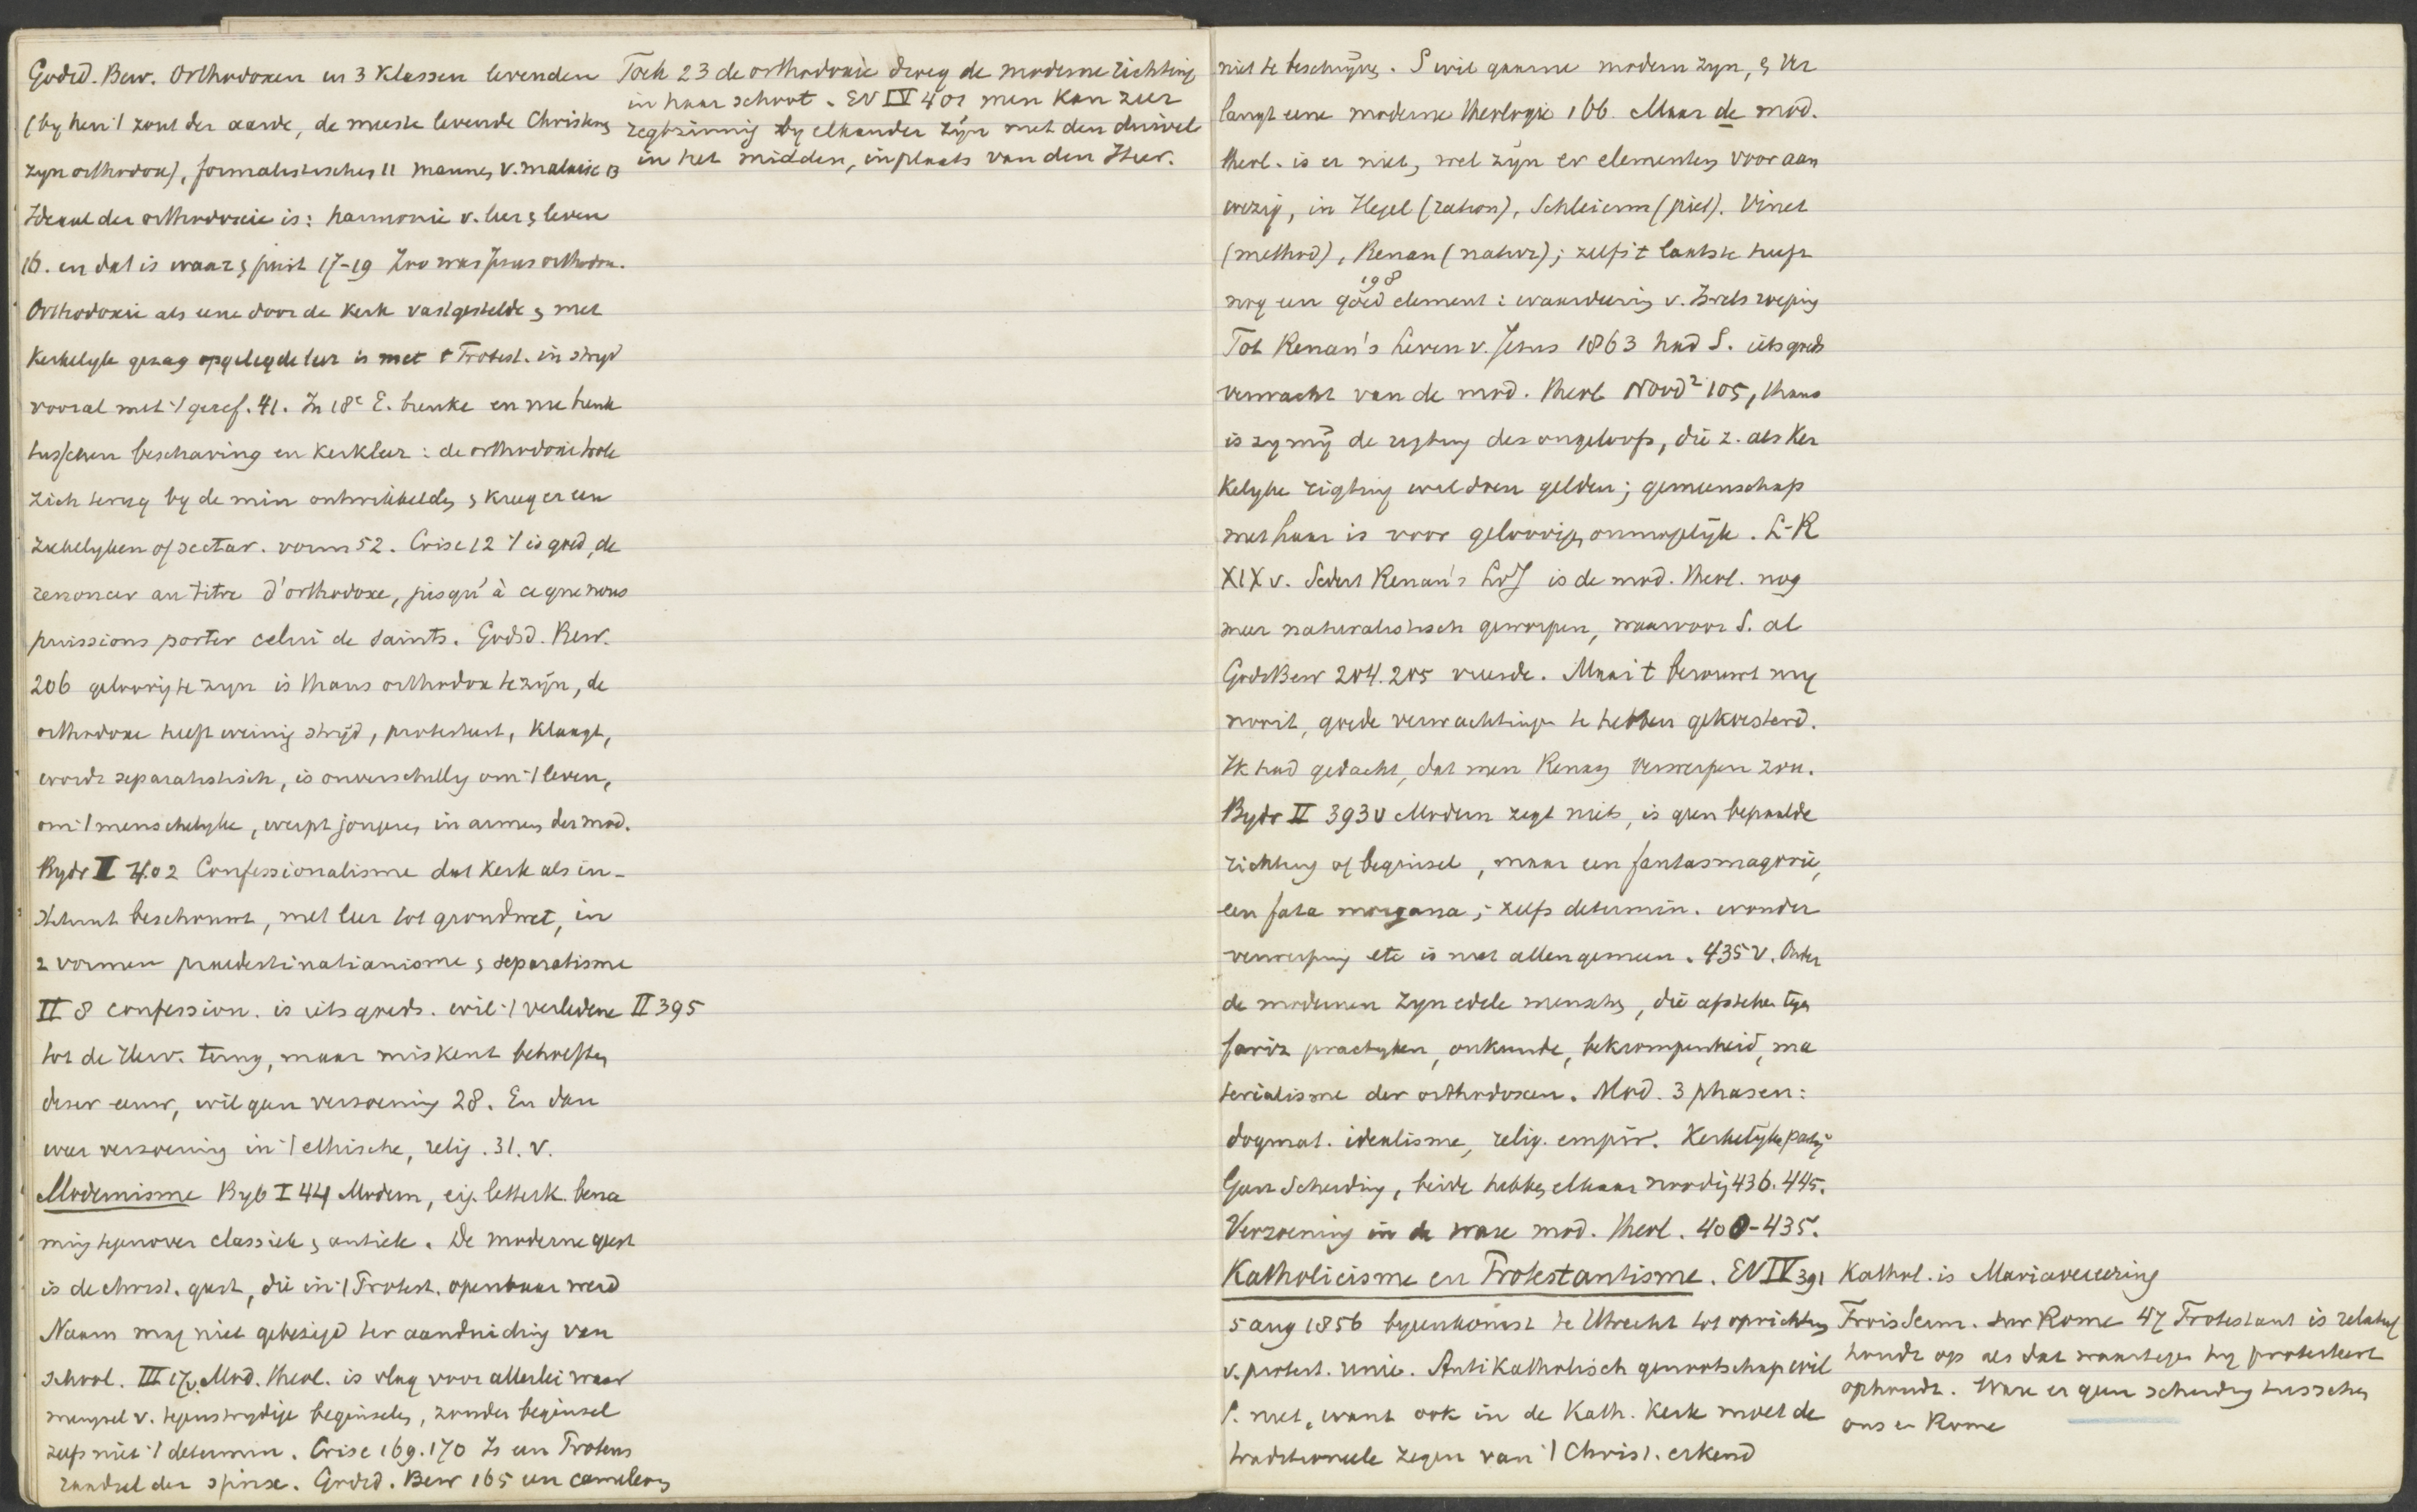 Godsd. Bew. Orthodoxen in 3 klassen levenden
(by hen 't zout der aarde, de meeste levende Christenen
zyn orthodox), formalistischen 11 mannen v. malaise 13
Ideaal der orthodoxie is: harmonie v. leer & leven
16. en dat is waar & juist 17-19 Zoo was Jezus orthodox.
Orthodoxie als eene door de Kerk vastgestelde & met
Kerkelyk gezag opgelegde leer is met 't Protest. in stryd
vooral met 't geref. 41. In 18e E. breuke
tusschen beschaving en Kerkleer: de orthodoxie trok
zich terug by de min ontwikkelden & kreeg er een
ziekelyken of sectar. vorm 52. Crise 12 't is goed, de
renoncer au titre d'orthodoxe, jusqu'à ce que nous
puissions porter celui de saints. Godsd. Bew.
206 geloovig te zyn is thans orthodox te zijn, de
orthodoxe heeft weinig strijd, protesteert, klaagt,
wordt separatistisch, is onverschillig om 't leven,
om 't menschelyke, werpt jongeren in armen der mod.
Bydr II 402 Confessionalisme dat Kerk als in-
stituut beschouwt, met leer tot grondwet, in
2 vormen praedestinatianisme & separatisme
II 8 confession. is iets goeds. wil 't verledene II 395
tot de Herv. terug, maar miskent behoeften
dezer eeuw, wil geen verzoening 28. En dan
weer verzoening in 't ethische, relig. 31. v.
Modernisme Byb I 44 Modern, eig. letterk. bena
ming tegenover classiek & antiek. De moderne geest
is de christ. geest, die in 't Protest. openbaar werd
Naam mag niet gebezigd ter aanduiding van
school. III 17v. Mod. theol. is vlag voor allerlei waar
mengsel v. tegenstrydige beginselen, zonder beginsel
zelfs niet 't determin. Crise 169.170 Is een Proteus
raadsel der spinx. Godsd. Bew 165 een cameleon
Toch 23 de orthodoxie droeg de moderne richting
in haar schoot. EV IV 401 men kan zeer
regtzinnig by elkander zijn met den duivel
in het midden, in plaats van den Heer.
niet te beschrijven. S wil gaarne modern zyn, & ver
langt eene moderne theologie 166. Maar de mod.
theol. is er niet, wel zijn er elementen voor aan
wezig, in Hegel (ration), Schleierm (piet). Vinet
(method), Renan (natur); zelfs 't laatste heeft
198
nog een goed element: waardeering v. Isrels roeping
Tot Renan's Leven v. Jezus 1863 had S. iets goeds
verwacht van de mod. theol Nood² 105, thans
is zy mij de rigting des ongeloofs, die z. als Ker
kelyke rigting wil doen gelden; gemeenschap
met haar is voor geloovigen onmogelijk. L-R
XIX v. Sedert Renan's LvJ is de mod. theol. nog
meer naturalistisch geworpen, waarvoor S. al
GodsBew 204.205 vreesde. Maar 't berouwt my
nooit, goede verwachtingen te hebben gekoesterd.
Ik had gedacht, dat men Renan verwerpen zou.
Bydr II 393v Modern zegt niets, is geen bepaalde
richting of beginsel, maar een fantasmagorie,
een fata morgana; zelfs determin. wonder
verwerping etc is niet allen gemeen. 435 v. Onder
de modernen zyn edele menschen, die opzien tegen
fariz practyken, onkunde, bekrompenheid, ma
terialisme der orthodoxen. Mod. 3 phasen:
dogmat. idealisme, relig. empir. Kerkelijke partij
Geen Scheiding, beide hebben elkaar noodig 436.445.
Verzoening in de ware mod. theol. 400-435.
Katholicisme en Protestantisme. EV IV 391
5 aug 1856 byeenkomst te Utrecht tot oprichting
v. protest. unie. Antikatholisch genootschap wil
S. niet, want ook in de Kath. Kerk moet de
traditioneele zegen van 't Christ. erkend
Kathol. is Mariavereering
Trois Serm. sur Rome 47 Protestant is relatief
houdt op als dat waartegen hy protesteert
ophoudt. Ware er geen scheiding tusschen
ons en Rome